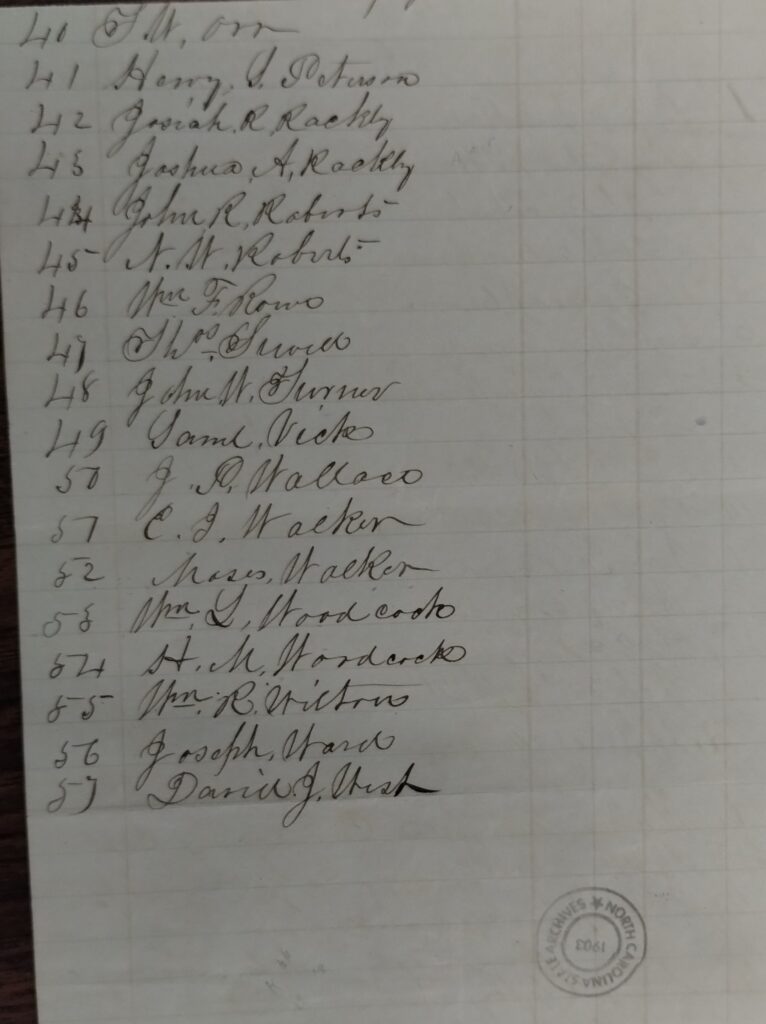 40 T. W. Orr
41 Henry, S. Peterson
42 Josiah. R. Rackly
43 Joshua, A, Rackly
44 John R, Roberts
45 N. W. Roberts
46 Wm F. Rowe
47 Thos.
48 John W. Turner
49 Saml. Vick
50 J. D. Wallace
51 C. J. Walker
52 Moses, Walker
53 Wm, L, Woodcock
54 H. M, Woodcock
55 Wm. R.
56 Joseph, Ward
57 David J, West
NORTH CAROLINA STATE ARCHIVES
1903